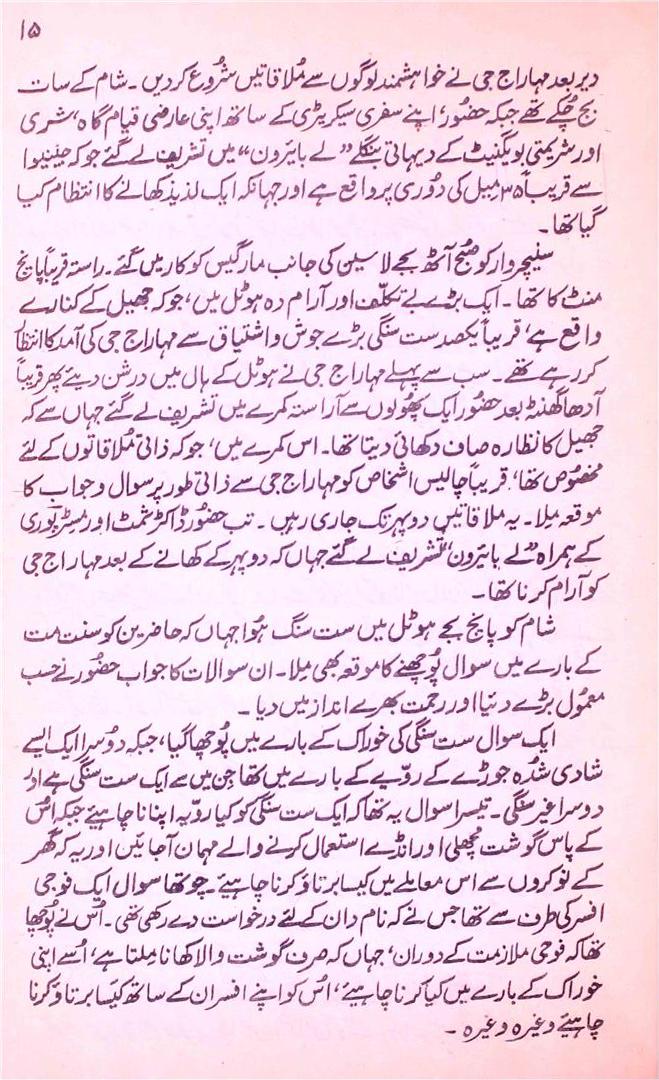 ۱۵
دیر بعد مہاراج جی نے خواہشمند لوگوں سے مُلاقاتیں شُروع کر دیں۔ شام کے سات
بج چُکے تھے جبکہ حضُور، اپنے سفری سیکریٹری کے ساتھ اپنی عارضی قیام گاہ، شری
اور شریمتی بویگنیٹ کے دیہاتی بنگلے ”لے بائیرون“ میں تشریف لے گئے جو کہ جینیوا
سے قریباً ۳۵ میل کی دُوری پر واقع ہے اور جہانکہ ایک لذیذ کھانے کا انتظام کیا
گیا تھا۔
سنیچروار کو صُبح آٹھ بجے لاسین کی جانب مارگیس کو کار میں گئے۔ راستہ قریباً پانچ
منٹ کا تھا۔ ایک بڑے بے تکلّف اور آرام دہ ہوٹل میں، جو کہ جھیل کے کنارے
واقع ہے، قریباً یکصد ست سنگی بڑے جوش و اشتیاق سے مہاراج جی کی آمد کا انتظار
کر رہے تھے۔ سب سے پہلے مہاراج جی نے ہوٹل کے ہال میں درشن دیئے پھر قریباً
آدھا گھنٹہ بعد حضُور ایک پھُولوں سے آراستہ کمرے میں تشریف لے گئے جہاں سے کہ
جھیل کا نظارہ صاف دکھائی دیتا تھا۔ اس کمرے میں، جو کہ ذاتی مُلاقاتوں کے لئے
مخصُوص تھا، قریباً چالیس اشخاص کو مہاراج جی سے ذاتی طور پر سوال و جواب کا
موقعہ مِلا۔ یہ مُلاقاتیں دوپہر تک جاری رہیں۔ تب حضُور ڈاکٹر شمٹ اور مسٹر پوری
کے ہمراہ ”لے بائیرون“ تشریف لے گئے جہاں کہ دوپہر کے کھانے کے بعد مہاراج جی
کو آرام کرنا تھا۔
شام کو پانچ بجے ہوٹل میں ست سنگ ہُوا جہاں کہ حاضرین کو سنت مت
کے بارے میں سوال پُوچھنے کا موقعہ بھی مِلا۔ ان سوالات کا جواب حضُور نے حسب
معمُول بڑے دیا اور رحمت بھرے انداز میں دیا۔
ایک سوال ست سنگی کی خوراک کے بارے میں پُوچھا گیا، جبکہ دُوسرا ایک ایسے
شادی شُدہ جوڑے کے روّیے کے بارے میں تھا جِن میں سے ایک ست سنگی ہے اور
دوسرا غیر سنگی۔ تیسرا سوال یہ تھا کہ ایک ست سنگی کو کیا روّیہ اپنانا چاہیئے جبکہ اُس
کے پاس گوشت مچھلی اور انڈے استعمال کرنے والے مہمان آ جائیں اور یہ کہ گھر
کے نوکروں سے اس معاملے میں کیسا برتاؤ کرنا چاہیئے۔ چوتھا سوال ایک فوجی
افسر کی طرف سے تھا جس نے کہ نام دان کے لئے درخواست دے رکھی تھی۔ اُس نے پُوچھا
تھا کہ فوجی ملازمت کے دوران، جہاں کہ صرف گوشت والا کھانا مِلتا ہے، اُسے اپنی
خوراک کے بارے میں کیا کرنا چاہیئے، اُس کو اپنے افسران کے ساتھ کیسا برتاؤ کرنا
چاہیئے وغیرہ وغیرہ۔